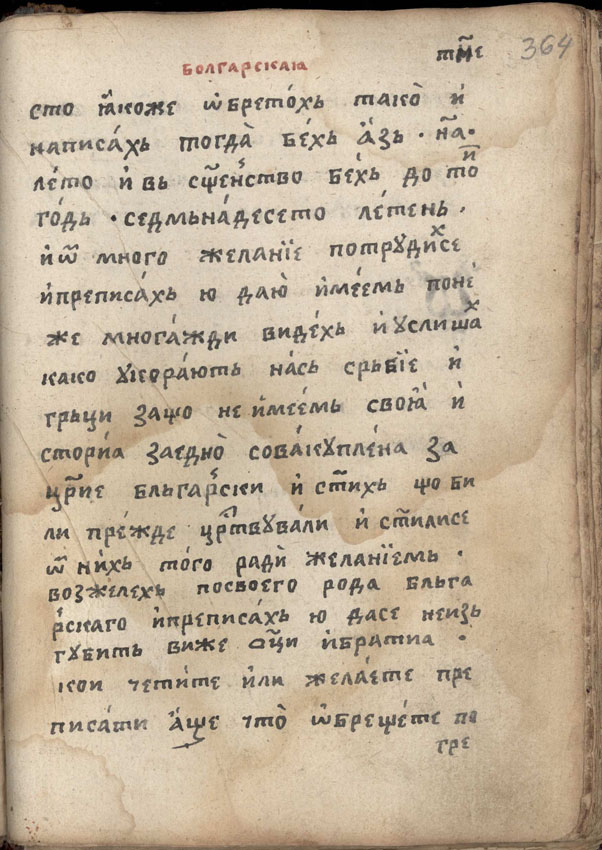 болгарскаꙗ
т꙯ме 364
сто ꙗкоже ѡ҆брето́хь тако̀ и҆
написа́хь тогда̀ бе́хь а҆́зь · н꙯а·
ле́то и҆ вь сщ҃е́нство бе́хь до тоⷩ҇
го́дь · седмьна́десето ле́тень ·
и҆ ѿ много желанїе потрудиⷯсе
и҆преписа́хь ю даю̀ и҆ме́емь поне́
же многа́жди виде́хь и҆ услишаⷯ
како ꙋкора́ють на́сь срьбїе и҆
грьци за́що не и҆ме́емь своꙗ̀ и҆
сторїа зае́дно̀ сова́кꙋпле́на за
цр҃їе бльгарⷭ҇ки и҆ ст҃ихь що би
ли пре́жде цр҃твува́ли и҆ ст҃илисе
ѿ нихь то́го ради̇̀ желанїемь ·
возжелехь посвоего рода бльга
рⷭ҇скаго и҆преписа́хь ю дасе неизь
губить виже ѻц҃и и҆братиа ·
кои чети́те и҆ли жела́ете пре
писа́ти а҆́ще что̀ ѡ҆бреще́те по
гре